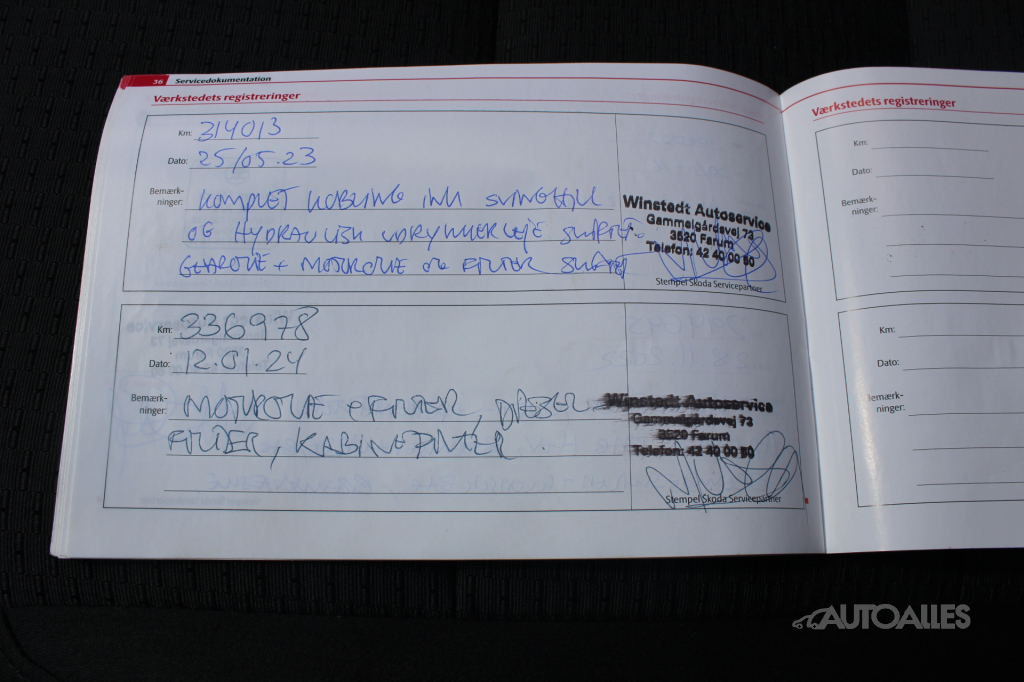 36 Servicedokumentation
Værkstedets registreringer
Km: 314013
Dato: 25/05.23
Bemærk-
ninger: KOMPLET KOBLING INKL SVINGHJUL
OG HYDRAULISK UDRYKKERLEJE SKIFTET
GEAROLIE + MOTOROLIE OG FILTER SKIFTET
Winstedt Autoservice
Gammelgårdsvej 73
3520 Farum
Telefon: 42 40 00 50
Stempel Skoda Servicepartner
Km: 336978
Dato: 12.01.24
Bemærk-
ninger: MOTOROLIE & FILTER, DIESEL
FILTER, KABINEFILTER
Winstedt Autoservice
Gammelgårdsvej 73
3520 Farum
Telefon: 42 40 00 50
Stempel Skoda Servicepartner
Værkstedets registreringer
Km:
Dato:
Bemærk-
ninger:
Km:
Dato:
Bemærk-
ninger:
AUTOALLES